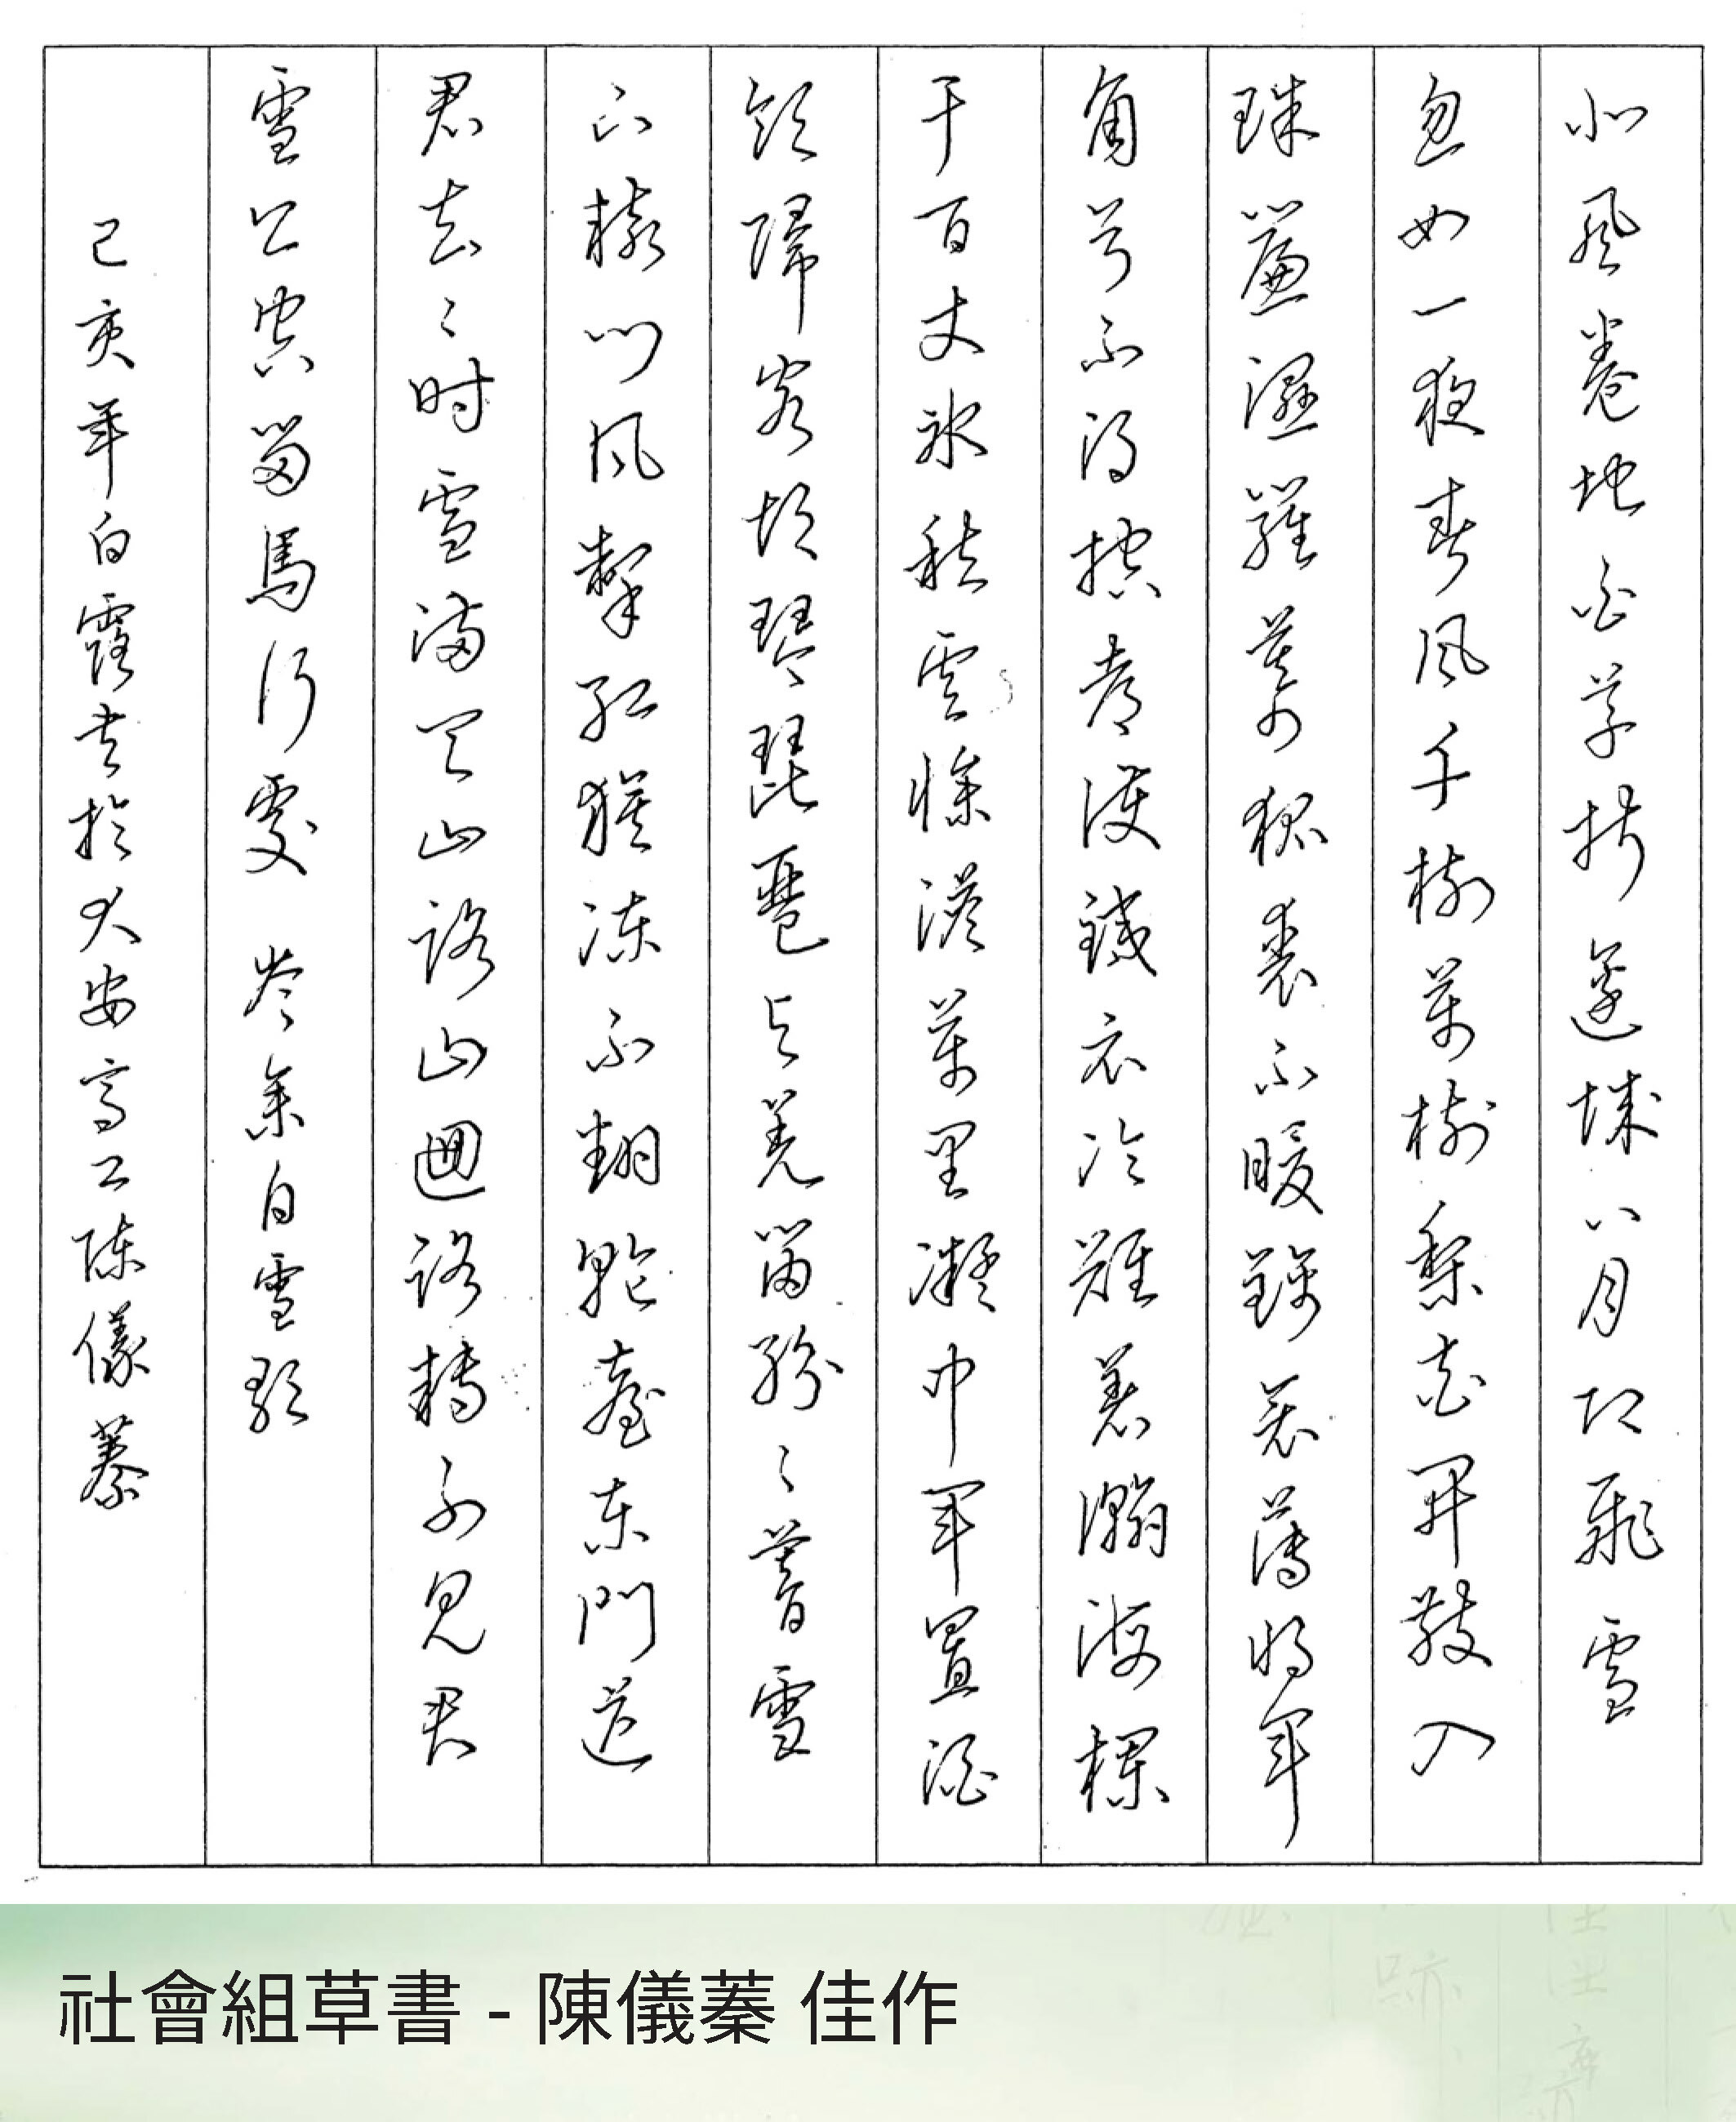 北風卷地白草折邊城八月即飛雪
忽如一夜春風千樹萬樹梨花開散入
珠簾濕羅幕狐裘不暖錦衾薄將軍
角弓不得控都護鐵衣冷難著瀚海欄
干百丈冰積雲慘淡萬里凝中軍置酒
飲歸客胡琴琵琶與羌笛紛々暮雪
下轅門風掣紅旗凍不翻輪臺東門送
君去々時雪滿天山路山迴路轉不見君
雪上空留馬行處 岑參白雪歌
己亥年白露書於大安高工陳儀蓁
社會組草書 - 陳儀蓁 佳作